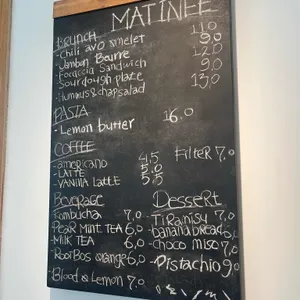 MATINEE
BRUNCH
- Chili avo omelet 11.0
- Jambon Beurre 9.0
- Foraccia Sandwich 12.0
- Sourdough plate 9.0
- Hummus & chap salad 13.0
PASTA
- Lemon butter 16.0
COFFEE
- americano 4.5
- LATTE 5.0
- VANilla Latte 5.5
FilteR 7.0
Beverage
Kombucha 7.0
- Pear Mint TEA 6.0
- MiLK TEA 6.0
- RooiBos orange 6.0
- Blood & Lemon 7.0
DesseRt
- Tiramisu 7.0
- banana bread
- choco miso 7.0
- Pistachio 9.0